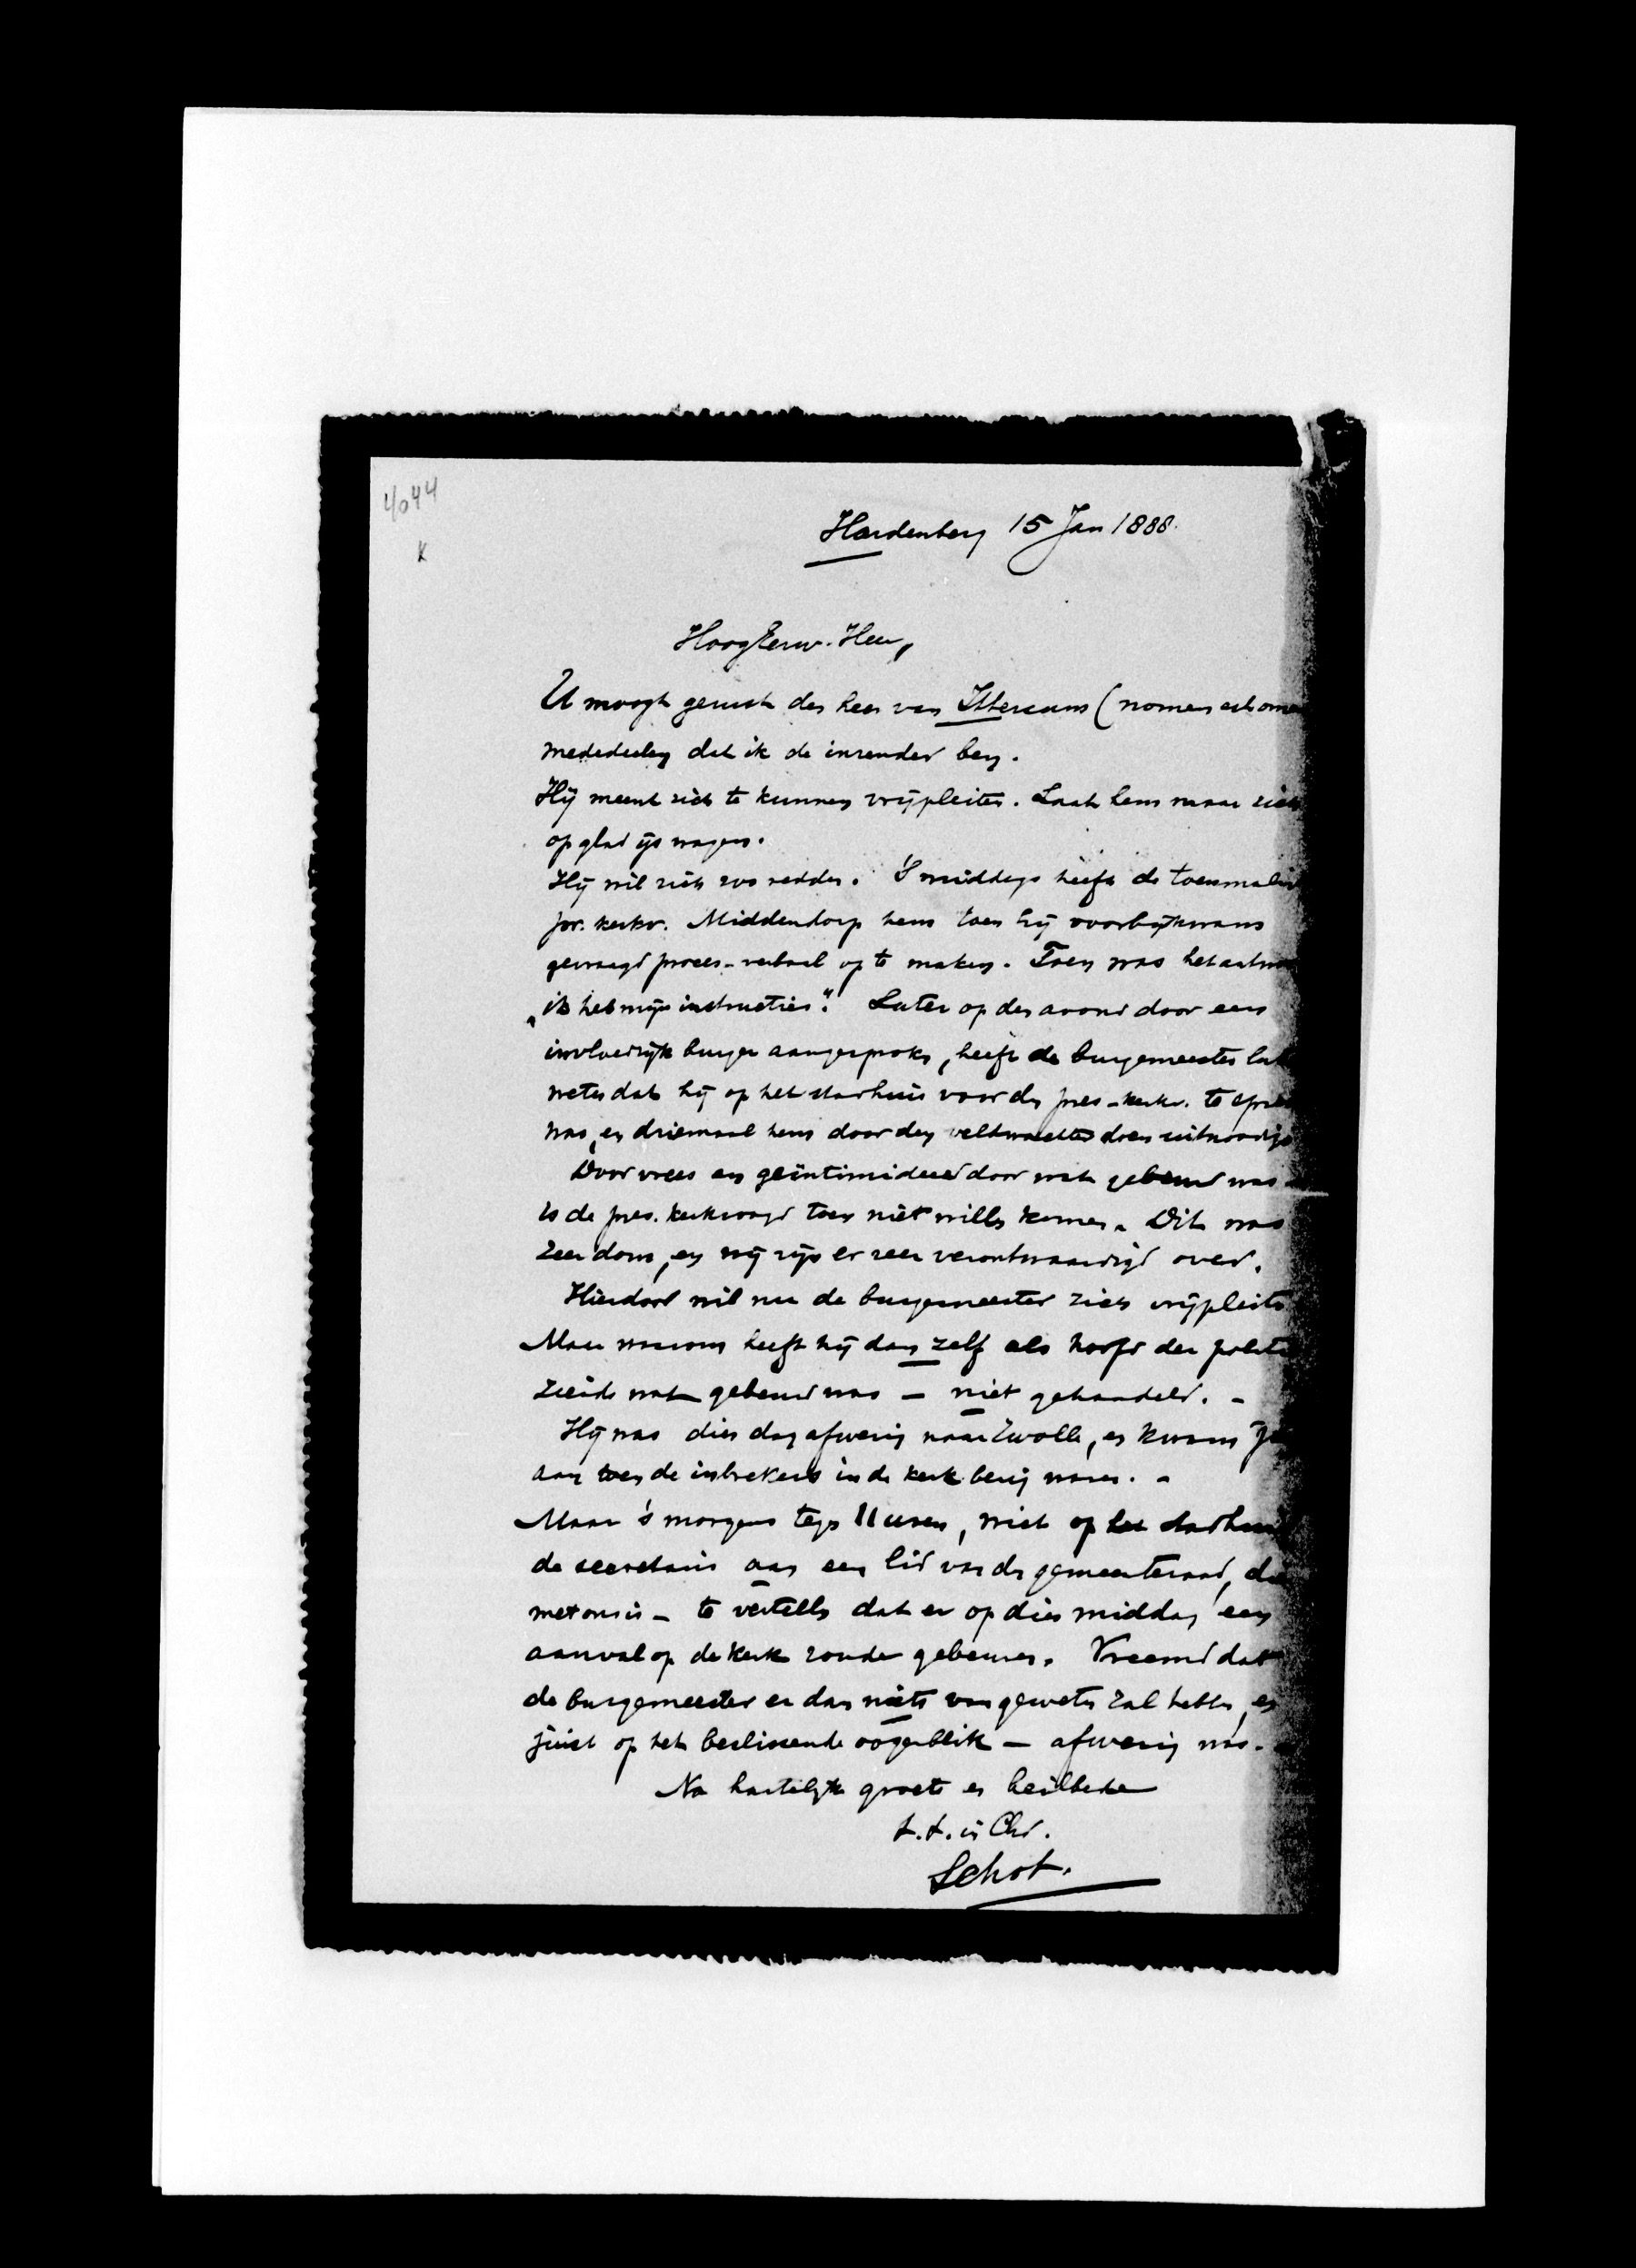 4044
K
Hardenberg 15 Jan 1888.
HoogEerw. Heer,
U moogt gerust den heer van Ittersum (nomen est omen
mededeelen dat ik de inzender ben.
Hij meent zich te kunnen vrijpleiten. Laat hem maar zich
op glad ijs wagen.
Hij wil zich zoo redden. 'S middags heeft de toenmalig
kerkv. Middendorp hem toen hij voorbijkwam
gevraagd proces-verbaal op te maken. Toen was het antwoo
„ik heb mijn instructies". Later op den avond door een
invloedrijk burger aangesproken, heeft de burgemeester lat
weten dat hij op het stadhuis voor den pres-kerkv. te spre
was, en driemaal hem door den veldwachter doen uitnoodige
Door vrees en geïntimideerd door wat gebeurd was
is de pres. kerkvoogd toen niet willen komen. Dit was
zeer dom, en wij zijn er zeer verontwaardigd over.
Hierdoor wil nu de burgemeester zich vrijpleite
Maar waarom heeft hij dan zelf als hoofd der politi
ziende wat gebeurd was - niet gehandeld. -
Hij was dien dag afwezig naar Zwolle, en kwam
aan toen de inbrekers in de kerk bezig waren. -
Maar 's morgens tegen 11 uren, wist op het stadhuis
de secretaris aan een lid van den gemeenteraad, die
met ons is - te vertellen dat er op dien middag een
aanval op de kerk zoude gebeuren. Vreemd dat
de burgemeester er dan niets van geweten zal hebben, en
juist op het beslissende oogenblik - afwezig was. -
Na hartelijke groete en heilbede
t.t. in Chr.
Schot.